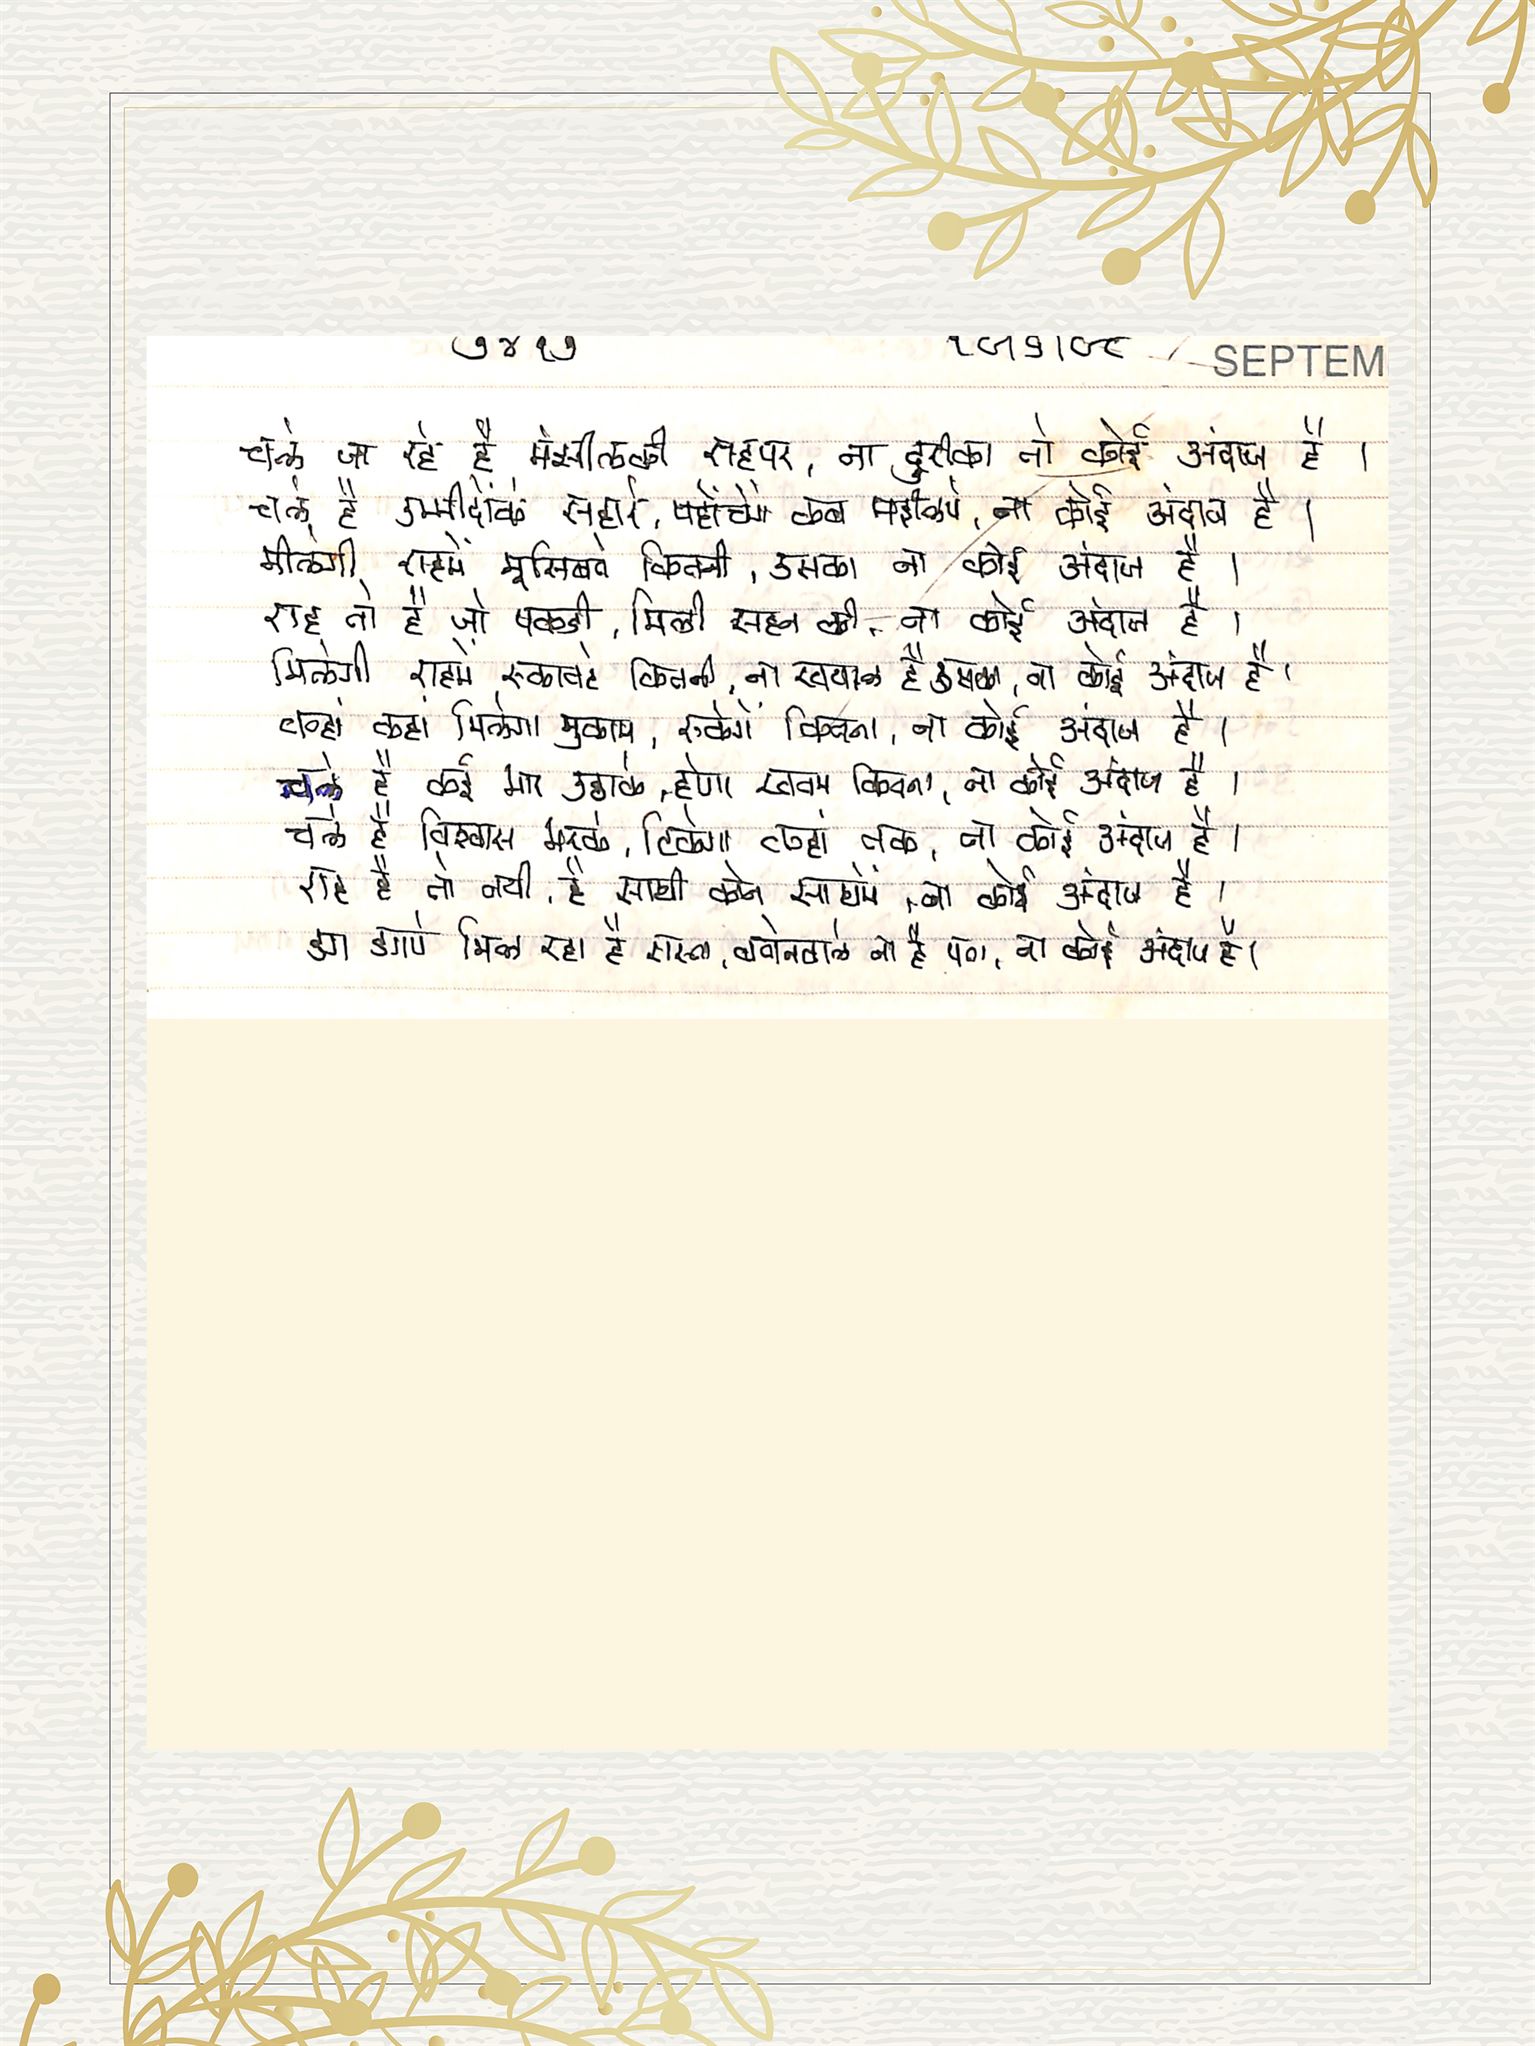 ७४१७
SEPTEM
चले जा रहे है मंझीलकी राहपर, ना दुरीका तो कोई अंदाज है ।
चले है उम्मीदोंके सहारे, पहोंचेंगे कब मझीलपे, ना कोई अंदाज है ।
मीलेगी राहमें मूसिबते कितनी, उसका ना कोई अंदाज है ।
राह तो है जो पकडी, मिली सहन की, ना कोई अंदाज है ।
मिलेगी राहमें रुकावटे कितनी, ना खयाल है उसका, ना कोई अंदाज है ।
कहां मिलेगा मुकाम, रुकेगें कितना, ना कोई अंदाज है ।
चले है कई भार उठाके, होगा खतम कितना, ना कोई अंदाज है ।
चले है विश्वास भरके, टिकेगा कहां तक, ना कोई अंदाज है ।
राह है तो नयी, है साथी कोन साथमें, ना कोई अंदाज है ।
डग डगपे मिल रहा है रास्ता, ना है पता, ना कोई अंदाज है ।